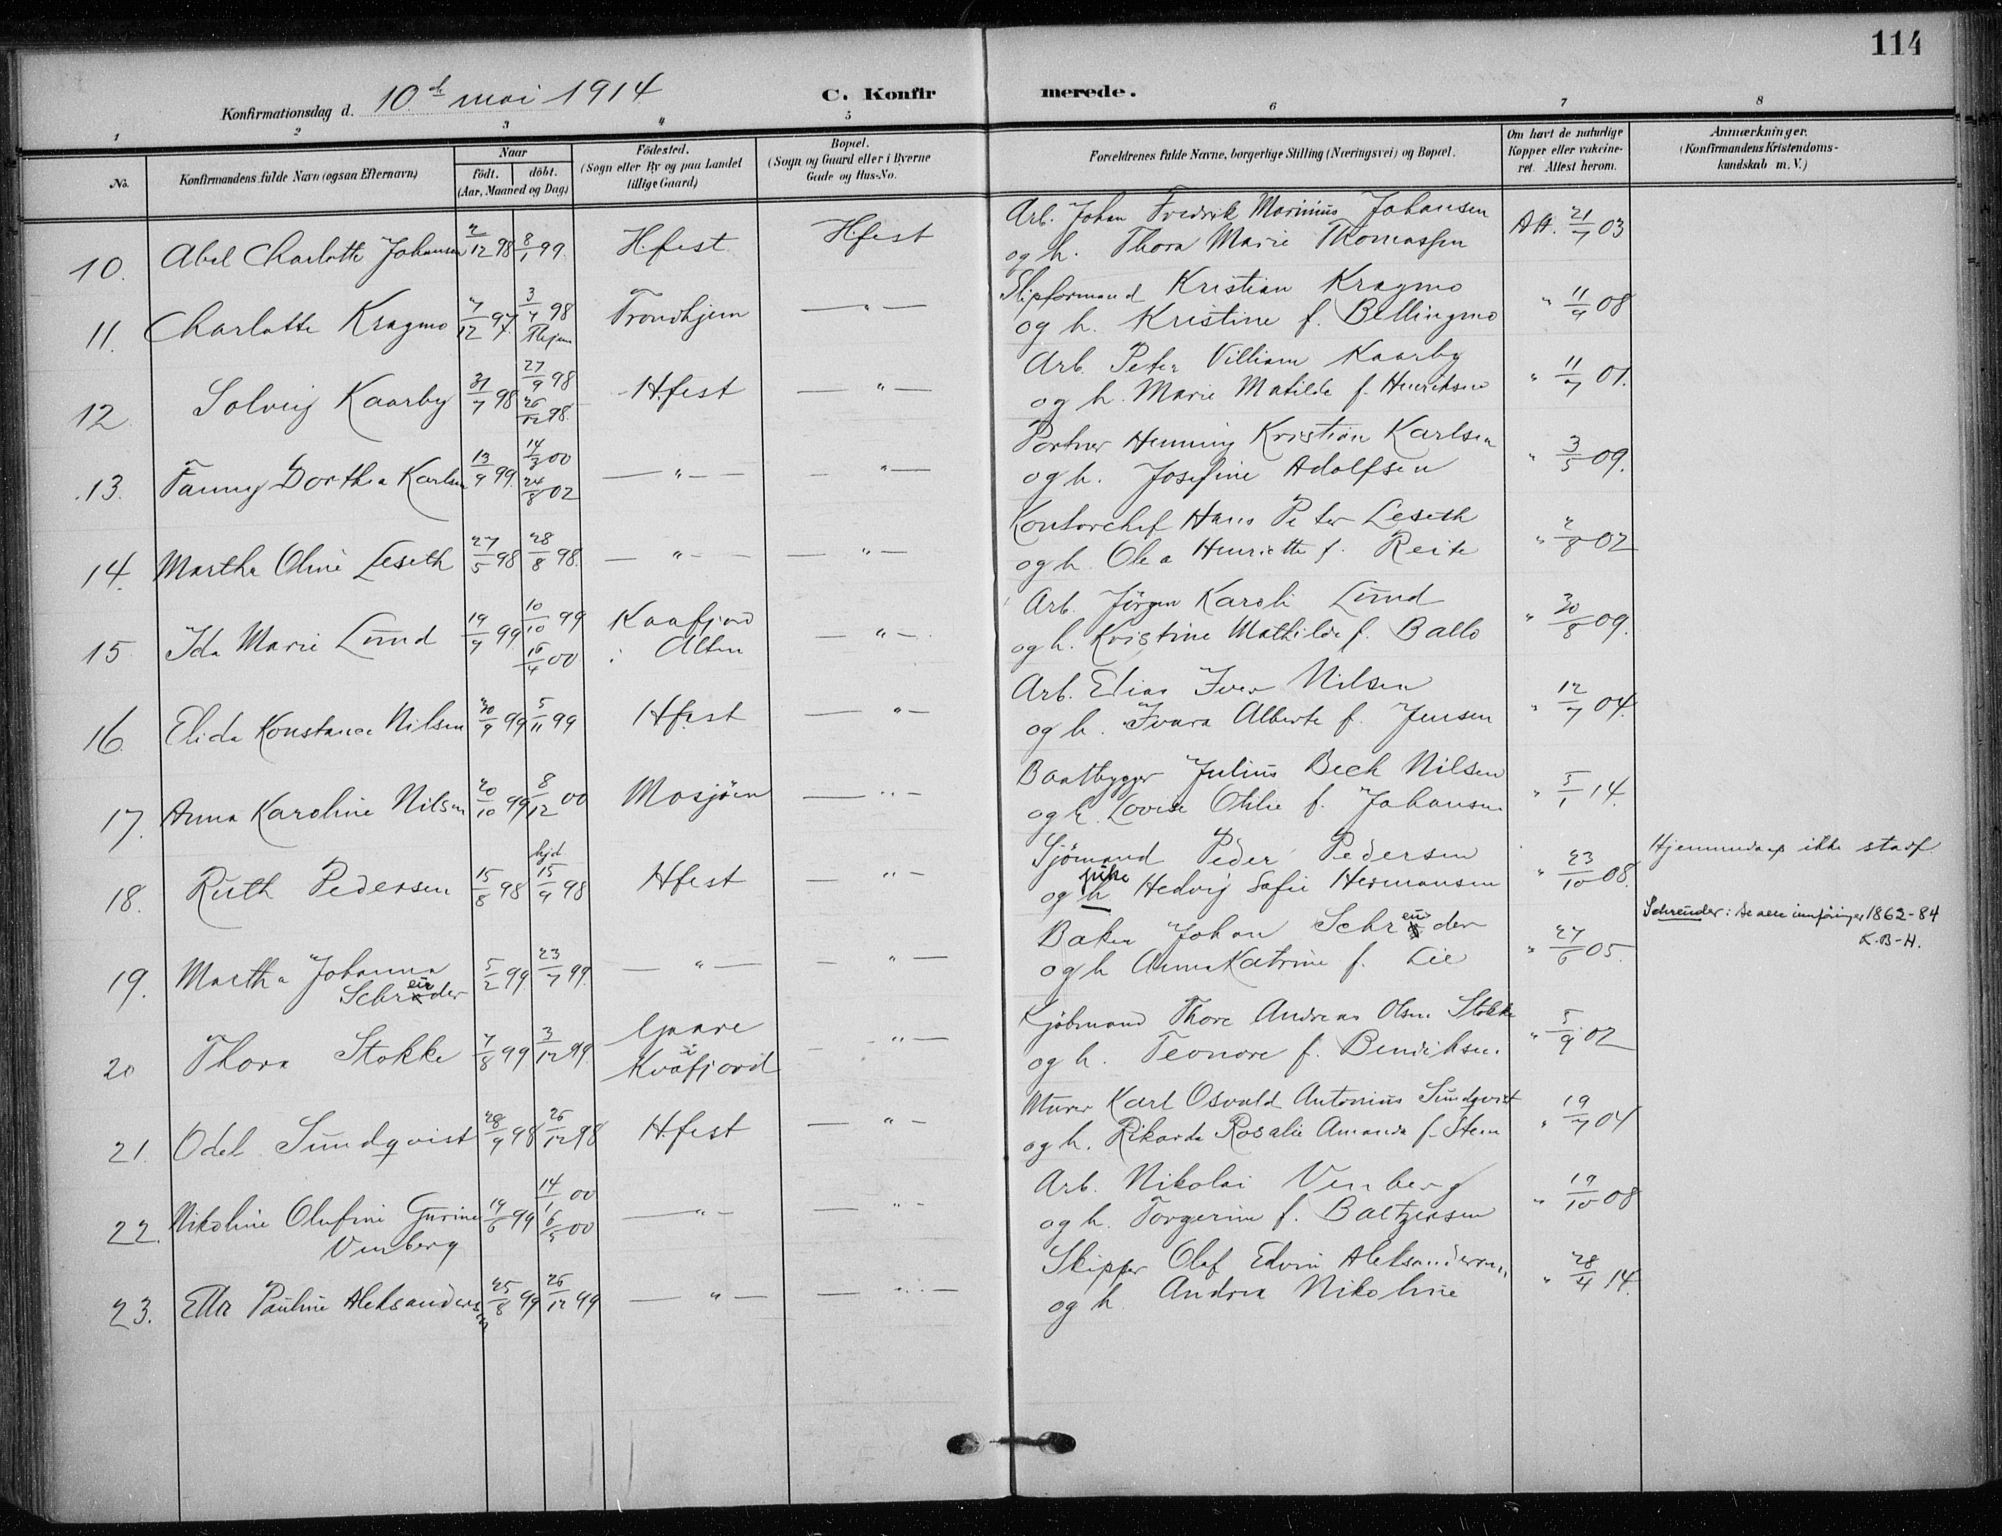 114
Konfirmationsdag d. 10de mai 1914
C. Konfirmerede.
1 2 3 4 5 6 7 8
No.
Konfirmandens fulde Navn (ogsaa Efternavn)
Naar
født. døbt.
(Aar, Maaned og Dag)
Fødested.
(Sogn eller By og paa Landet
tillige Gaard)
Bopæl.
(Sogn og Gaard eller i Byerne
Gade og Hus-No.
Forældrenes fulde Navne, borgerlige Stilling (Næringsvei) og Bopæl.
Om havt de naturlige
Kopper eller vakcine-
ret. Attest herom.
Anmærkninger.
(Konfirmandens Kristendoms-
kundskab m. V.)
10. Abel Charlotte Johansen 2/12 98 8/1 99 H.fest H.fest Arb. Johan Fredrik Marinius Johansen
og h. Thora Marie Thomassen Att. 21/7 03
11. Charlotte Kragmo 7/12 97 3/4 98 Thjem Trondhjem — " — Slipformand Kristian Kragmo
og h. Kristine f. Bellingmo " 11/9 08
12 Solveig Kaarby 31/7 98 27/9 98 26/12 98. H.fest — " — Arb. Peter Villiam Kaarby
og h. Marie Matilde f. Henriksen " 11/7 01.
13. Fanny Dorthea Karlsen 13/9 99 14/3 00 24/8 02 — " — — " — Portner Henning Kristian Karlsen
og h. Josefine Adolfsen " 3/5 09.
14. Martha Oline Leseth 27/5 98 28/8 98. — " — — " — Kontorchef Hans Peter Leseth
og h. Olea Henriette f. Reite " 2/8 02
15 Ida Marie Lund 19/9 99 10/10 99 16/4 00 Kaafjord i Alten — " — Arb. Jørgen Karoli Lund
og h. Kristine Mathilde f. Ballo " 30/8 09.
16. Elida Konstance Nilsen 30/9 99 5/11 99 H.fest — " — Arb. Elias Iver Nilsen
og h. Ivara Alberte f. Jensen " 12/7 04.
17. Anna Karoline Nilsen 20/10 99 8/12 00 Mosjøen — " — Baatbygger Julius Bech Nilsen
og h. Lovise Otilie f. Johansen " 5/1 14.
18. Ruth Pedersen 15/8 98 hjd. 15/9 98 Hfest — " — Sjømand Peder Pedersen
og h pike Hedvig Sofie Hermansen " 23/10 08. Hjemmedaap ikke stadf
19. Martha Johanna
Schreuder 5/2 99. 23/7 99. — " — — " — Baker Johan Schreuder
og h Anna Katrine f. Lie " 27/6 05. Schreuder: se alle innføringer 1862-84
K.B-H.
20 Thora Stokke 7/8 99 3/12 99. Gaare
i
Kvæfjord — " — Kjøbmand Thore Andreas Olsen Stokke
og h. Leonore f. Bendiksen. " 5/9 02
21. Odel Sundqvist 28/9 98 26/12 98 H.fest — " — Murer Karl Osvald Antonius Sundqvist
og h. Rikarda Rosalie Amanda f. Sten " 19/7 04
22. Nikoline Olufine Gurine
Venberg 19/6 99 14/1 00 6/5 00 — " — — " — Arb. Nikolai Venberg
og h. Torgerine f. Baltzersen " 19/10 08
23. Etta Pauline Aleksandersen 25/8 99 26/12 99 — " — — " — Skipper Olaf Edvin Aleksandersen
og h. Andrea Nikoline " 28/4 14.